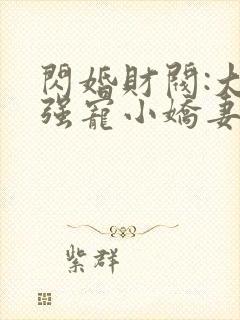 閃婚財閥:大
强寵小嬌妻
紫群